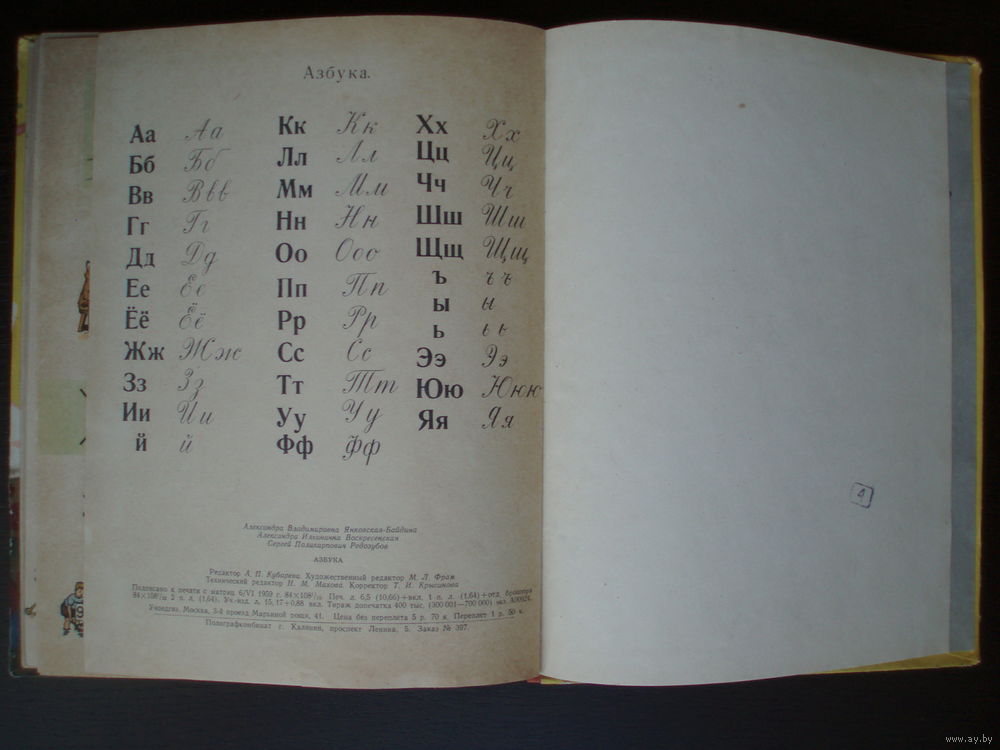 Азбука.
Аа Аа
Бб Бб
Вв Ввв
Гг Гг
Дд Дд
Ее Ее
Ёё Ёё
Жж Жж
Зз Зз
Ии Ии
й й
Кк Кк
Лл Лл
Мм Мм
Нн Нн
Оо Ооо
Пп Пп
Рр Рр
Сс Сс
Тт Тт
Уу Уу
Фф Фф
Хх Хх
Цц Цц
Чч Чч
Шш Шш
Щщ Щщ
Ъ ъ ъ
ы ы
ь ь ь
Ээ Ээ
Юю Ююю
Яя Яя
Александра Владимировна Янковская-Байдина
Александра Ильинична Воскресенская
Сергей Поликарпович Редозубов
АЗБУКА
Редактор А. П. Кубарева. Художественный редактор М. Л. Фрам
Технический редактор Н. М. Махова. Корректор Т. И. Крысанова
Подписано к печати с матриц 6/VI 1959 г. 84×108¹/₁₆ Печ. л. 6,5 (10,66)+вкл. 1 п. л. (1,64)+отд. брошюра
84×108¹/₃₂ 2 п. л. (1,64). Уч.-изд. л. 15,17+0,88 вкл. Тираж допечатка 400 тыс. (300 001—700 000) экз.
Учпедгиз. Москва, 3-й проезд Марьиной рощи, 41. Цена без переплета 5 р. 70 к. Переплет 1 р. 50 к.
Полиграфкомбинат г. Калинин, проспект Ленина, 5. Заказ № 397.
4
www.ay.by